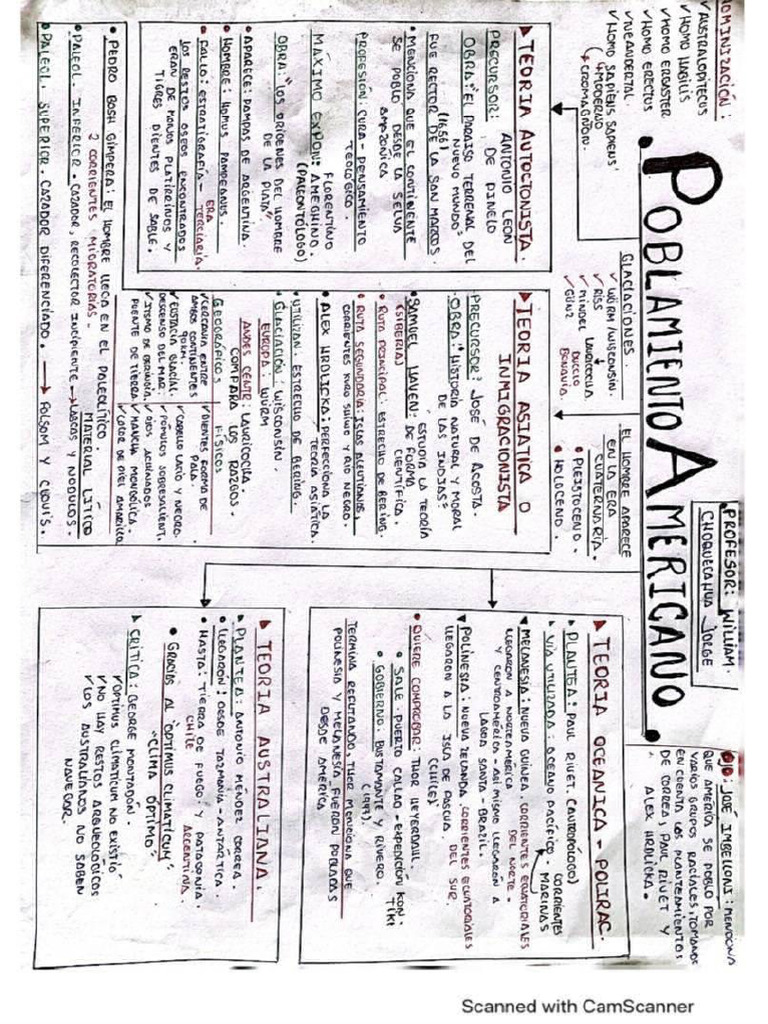 POBLAMIENTO AMERICANO
PROFESOR: WILLIAM
CHOQUECAHUA JORGE
OMINIZACIÓN:
✓AUSTRALOPITECUS
✓HOMO HABILIS
✓HOMO ERGASTER
✓HOMO ERECTUS
✓NEANDERTAL
✓HOMO SAPIENS SAPIENS
MODERNO
CROMAGÑON
GLACIACIONES
✓WÜRM/WISCONSIN.
✓RISS
✓MINDEL
✓GÜNZ
LAURICOCHA
EL HOMBRE APARECE
EN LA ERA
CUATERNARIA.
• PLEISTOCENO.
• HOLOCENO.
OJO: JOSÉ IMBELLONI: MENCIONA
QUE AMERICA SE POBLÓ POR
VARIOS GRUPOS RACIALES, TOMANDO
EN CUENTA LOS PLANTEAMIENTOS
DE CORREA, PAUL RIVET Y
ALEX HRDLICKA.
▸TEORIA AUTOCTONISTA.
PRECURSOR: ANTONIO LEÓN
DE PINELO
OBRA: "EL PARAISO TERRENAL DEL
NUEVO MUNDO"
(1656)
FUE RECTOR DE LA SAN MARCOS.
•MENCIONA QUE EL CONTINENTE
SE POBLÓ DESDE LA SELVA
AMAZONICA
PROFESIÓN: CURA - PENSAMIENTO
TEOLOGICO.
MÁXIMO EXPON: FLORENTINO
AMEGHINO.
(PALEONTÓLOGO)
OBRA: "LOS ORÍGENES DEL HOMBRE
DE LA PLATA"
•APARECE: PAMPAS DE ARGENTINA.
•HOMBRE: HOMUS PAMPEANUS
•FALLO: ESTRATIGRAFÍA - ERA TERCIARIA.
LOS RESTOS OSEOS ENCONTRADOS
ERAN DE MONOS PLATIRRINOS Y
TIGRES DIENTES DE SABLE.
▸TEORIA ASIATICA O
INMIGRACIONISTA
PRECURSOR: JOSÉ DE ACOSTA.
OBRA: "HISTORIA NATURAL Y MORAL
DE LAS INDIAS"
SAMUEL HAVEN: ESTUDIA LA TEORÍA
DE FORMA
(SIBERIA) CIENTIFICA.
• RUTA PRINCIPAL: ESTRECHO DE BERING
• RUTA SECUNDARIA: ISLAS ALEUTIANAS,
CORRIENTES KURO SHIWO Y RIO NEGRO.
• ALEX HRDLICKA: PERFECCIONA LA
TEORÍA ASIATICA.
•UTILIZAN: ESTRECHO DE BERING.
GLACIACIÓN: WISCONSIN.
EUROPA: WURM
ANDES CENTR: LAURICOCHA.
COMPARA LOS RAZGOS.
GEOGRÁFICOS
✓CERCANIA ENTRE
AMBOS CONTINENTES
90KM.
✓EUSTACIA GLACIAL
DESCENSO DEL MAR.
✓ISTMO DE BERINGIA
PUENTE DE TIERRA
FÍSICOS
✓DIENTES FORMA DE
PALA.
✓CABELLO LACIO Y NEGRO.
✓PÓMULOS SOBRESALIENT.
✓OJOS ACHINADOS
✓MANCHA MONGÓLICA
✓COLOR DE PIEL AMARILLO
• PEDRO BOSH GIMPERA: EL HOMBRE LLEGA EN EL PALEOLÍTICO.
2 CORRIENTES MIGRATORIAS.
MATERIAL LÍTICO
•PALEOL. INFERIOR. CAZADOR, RECOLECTOR INCIPIENTE → LASCAS Y NODULOS.
•PALEOL. SUPERIOR. CAZADOR DIFERENCIADO. → FOLSOM Y CLOVIS.
▸ TEORIA OCEANICA - POLIRAC.
▸PLANTEA: PAUL RIVET (ANTROPÓLOGO)
▸VIA UTILIZADA: OCEANO PACÍFICO. CORRIENTES
MARINAS
▸MELANESIA: NUEVA GUINEA. CORRIENTES ECUATORIALES
DEL NORTE -
LLEGARON A NORTEAMERICA
Y CENTROAMERICA - ASI MISMO LLEGARON A
LAGOA SANTA - BRAZIL.
▸POLINESIA: NUEVA ZELANDA. CORRIENTES ECUATORIALES
DEL SUR.
LLEGARON A LA ISLA DE PASCUA.
(CHILE)
▸QUIERE COMPROBAR: THOR HEYERDAHL
• SALE - PUERTO CALLAO - EXPEDICIÓN KON-
TIKI
(1947)
• GOBIERNO: BUSTAMANTE Y RIVERO.
TERMINA REFUTANDO. THOR MENCIONA QUE
POLINESIA Y MELANESIA FUERON POBLADAS
DESDE AMERICA
▸TEORIA AUSTRALIANA.
▸PLANTEA: ANTONIO MENDEZ CORREA.
•LLEGARÓN: DESDE TAZMANIA - ANTÁRTICA.
• HASTA: TIERRA DE FUEGO Y PATAGONIA.
CHILE ARGENTINA.
• GRACIAS AL "OPTIMUS CLIMATICUM"
"CLIMA ÓPTIMO"
▸CRITICA: GEORGE MONTADÓN.
✓OPTIMUS CLIMATICUM NO EXISTIÓ
✓NO HAY RESTOS ARQUEOLÓGICOS
✓LOS AUSTRALIANOS NO SABEN
NAVEGAR.
Scanned with CamScanner